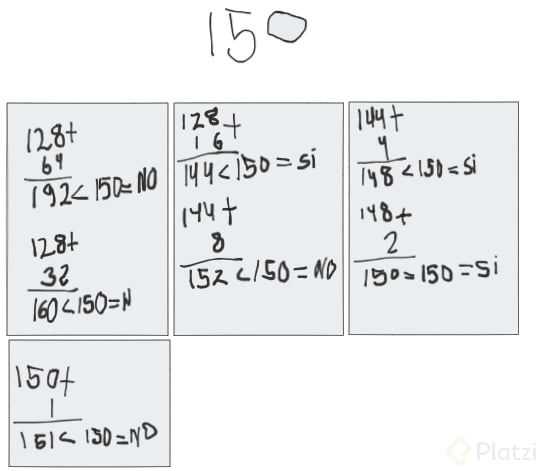 150
128+
64
192<150=NO
128+
32
160<150=N
128+
16
144<150=Si
144+
8
152<150=NO
144+
4
148<150=Si
148+
2
150=150=Si
150+
1
151<150=NO
Platzi